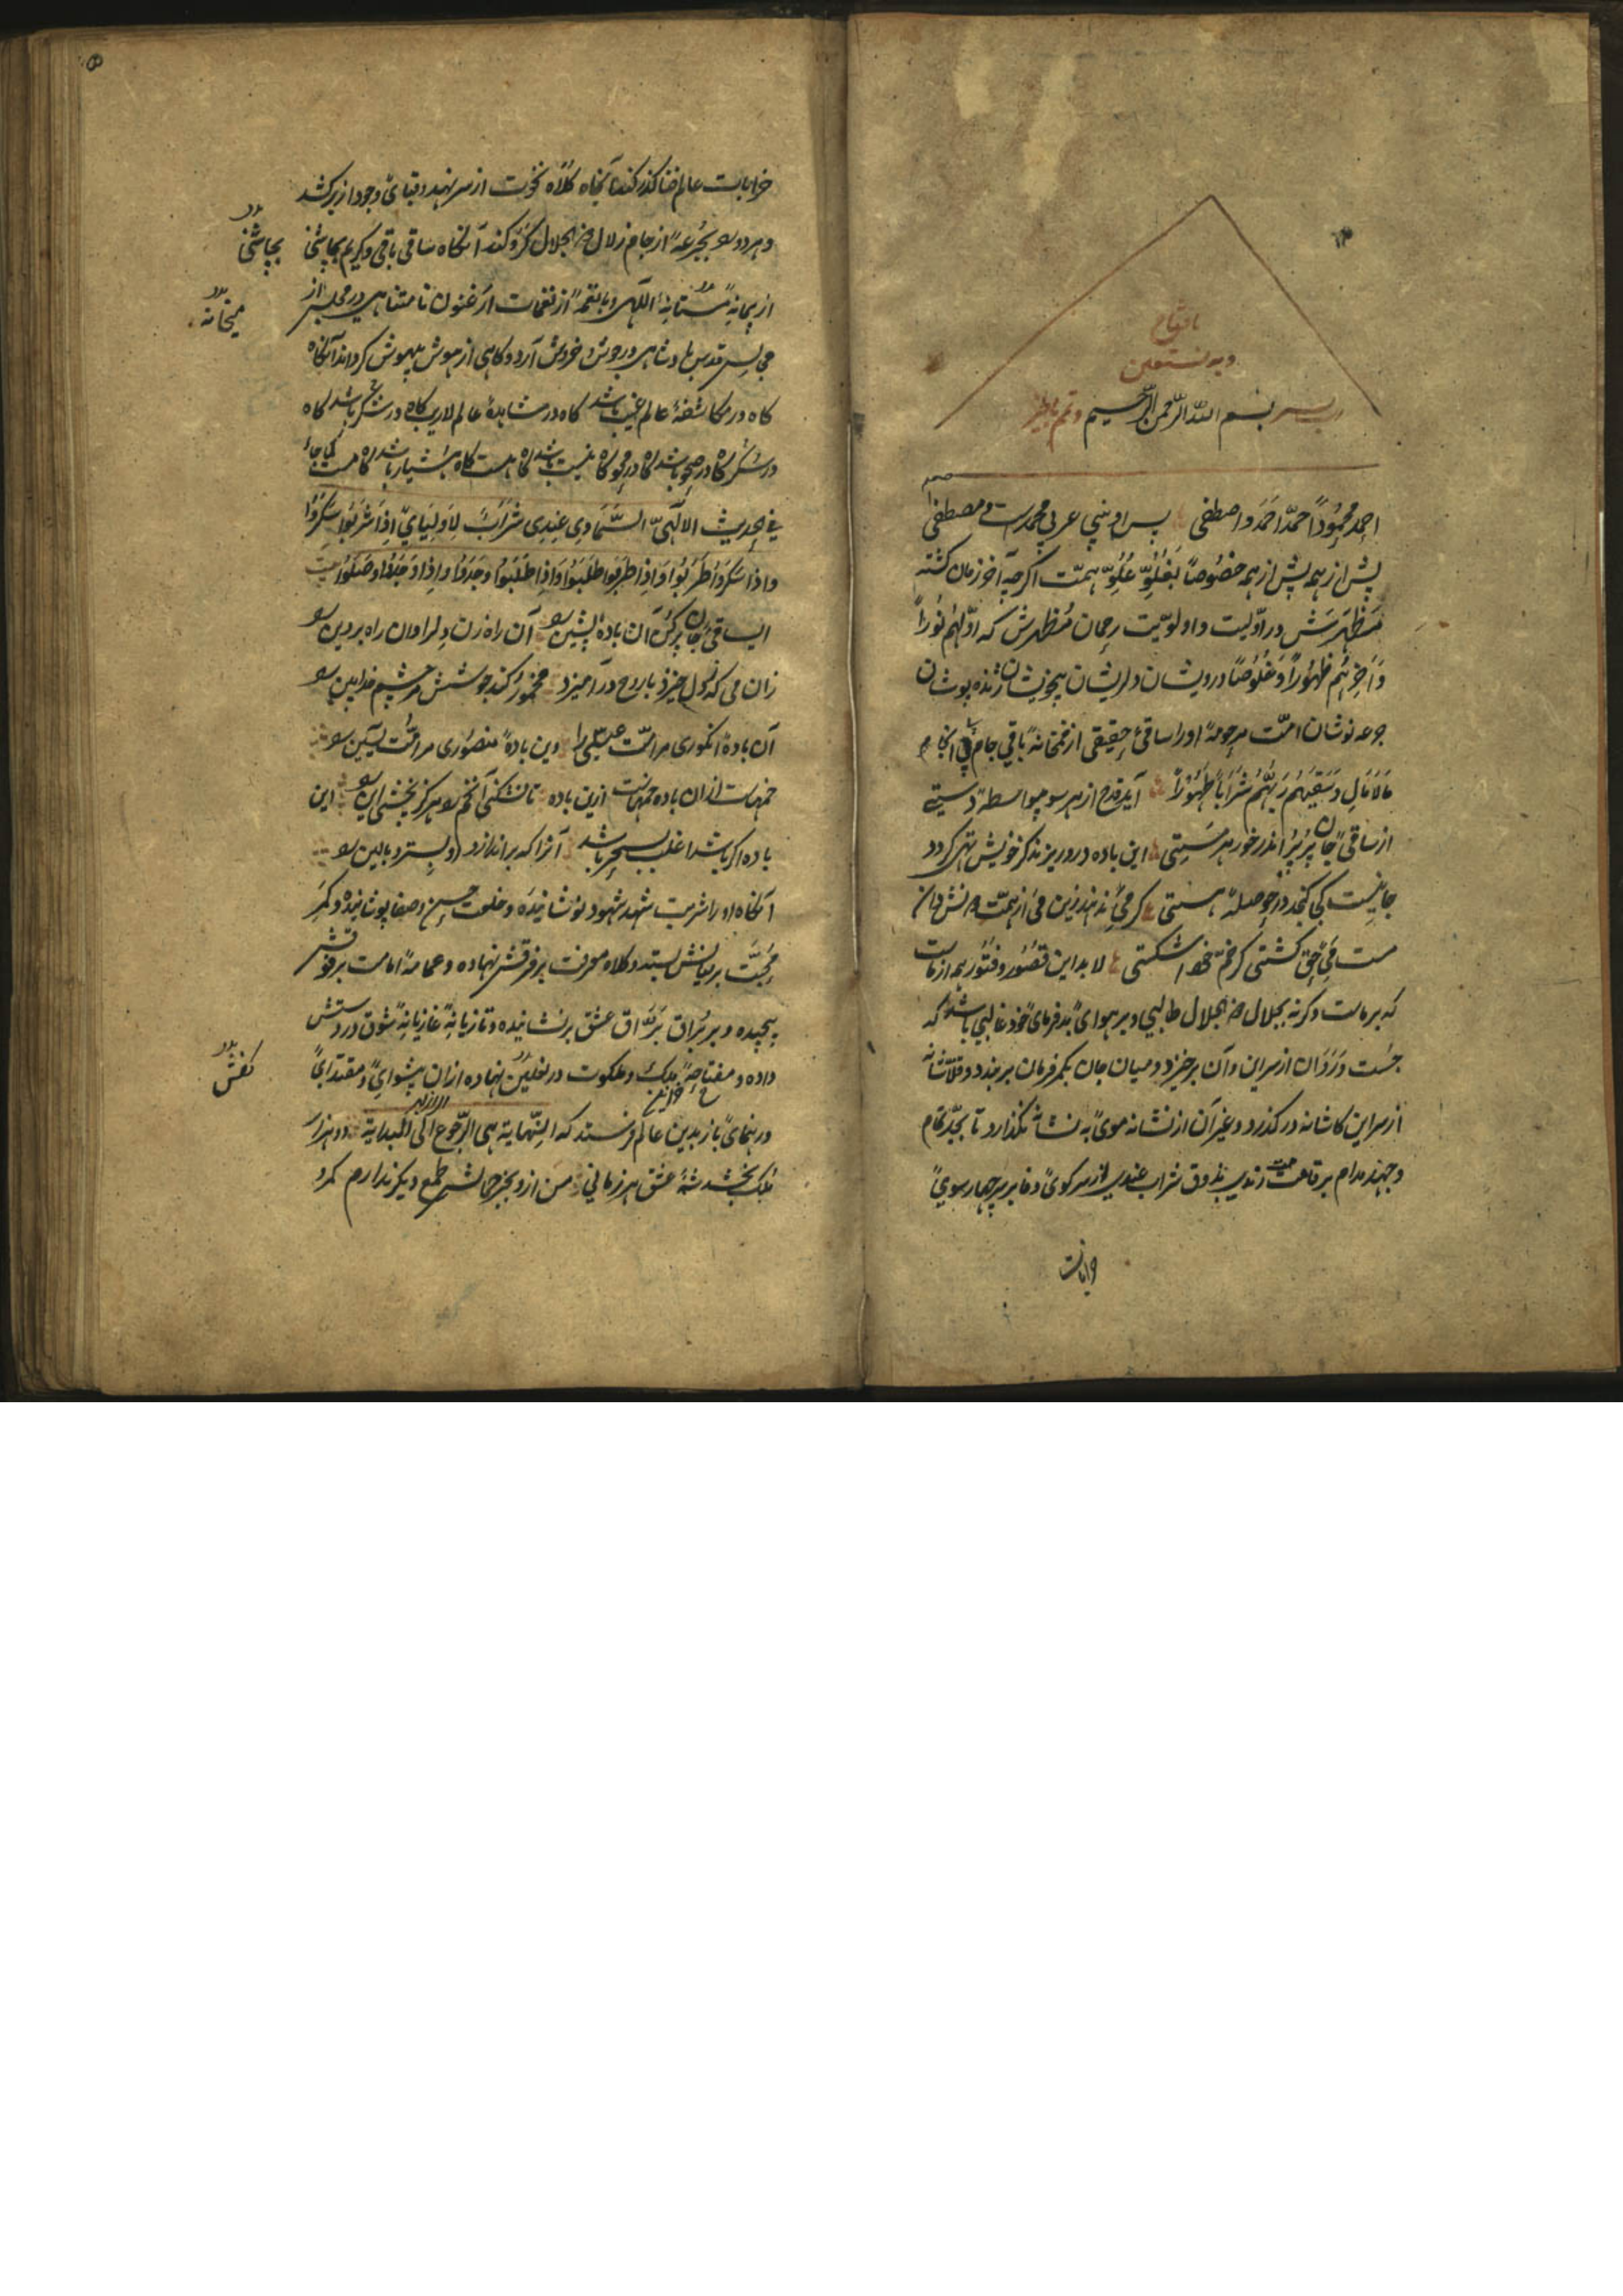 یا فتاح
وبه نستعین
رب یسر بسم الله الرحمن الرحیم وتمم بالخیر
احمد محمودا حمدا احمد واصطفی پس او نبی عربی محمدست و مصطفی
پیش از همه پیش از همه خصوصا بغلو علو همت اگرچه آخر زمان گشته
مظهرش در اولیت و اولویت رحمان مظهرش که اولهم نورا
وآخرهم ظهورا وخلوصا درویشان دلریشان بیخویشان ژنده پوشان
جرعه نوشان امت مرحومهٔ او را ساقیٔ حقیقی از خمخانهٔ باقی جام
مالامال وسقیهم ربهم شرابا طهورا آید قدح از هر سو بیواسطه دستی
از ساقیٔ جان پرپر اندر خور هر مستی این باده درو ریزند کز خویش تهی گردد
جانیست کی گنجد در حوصلهٔ هستی گر می ندهند زین می از همت
مست می حق گشتی گر خم شکستی لا بد این قصور و فتور هم از ماست
که بر ماست وگرنه بجلال ذو الجلال طالبی و بر هوای خود غالبی باشد که
چست از سر این و آن برخیزد و میان جان بکمر فرمان بربندد و قلاشانه
از سر این کاشانه درگذرد و غیر آن از نشانه موی به نشانه نگذارد تا بجد تمام
وجهد مدام بر قاعدت رندی بذوق شراب عندی از سر کوی وفا بر سر چهار سوی
خرابات
خرابات عالم فنا گذر کند آنگاه کلاه نخوت از سر نهد و قبای وجود از بر کشد
و هر دو بجرعهٔ از جام زلال ذو الجلال گرو کند آنگاه ساقی باقی و کریم بچاشنی
بچاشنی
از پیمانهٔ مستانهٔ الهی و بانغمهٔ از نغمات ارغنون نامتناهی در مجلس از
میخانه
مجالس قدس پادشاهی در جوش و خروش آرد و گاهی از هوش بیهوش گرداند آنگاه
گاه در مکاشفهٔ عالم غیب باشد گاه در مشاهدهٔ عالم لاریب گاه در شکر باشد گاه
در سکر گاه در صحو باشد گاه در محو گاه نیست باشد گاه هست گاه هشیار باشد گاه مست کما جاء
فی الحدیث الالهی السماوی عندی شراب لاولیایی اذا شربوا سکروا
واذا سکروا طربوا واذا طربوا طلبوا واذا طلبوا وجدوا واذا وجدوا وصلوا بیت
ای ساقیٔ جان پر کن آن بادهٔ پیشین را آن راه زن دل را وان راه بر دین را
زان می که ز دل خیزد با روح درآمیزد مخمور کند جوشش مر چشم خدابین را
آن بادهٔ انگوری مر امت عیسی را وین بادهٔ منصوری مر امت یاسین را
خمهاست ازان باده خمهاست ازین باده تا نشکنی آن خم را هرگز نچشی این را این
باده اگر باشد اغلب بسحر باشد آنرا که براندازد او بستر و بالین را
آنگاه او را شربت شهد شهود نوشانیده و خلعت حسن و صفا پوشانیده و کمر
محبت بر میانش بستد و کلاه معرفت بر فرقش نهاده و عمامهٔ امامت بر فرقش
پیچیده و بر براق براق عشق برنشانیده و تازیانهٔ غازیانهٔ شوق در دستش
داده و مفتاح ملک و ملکوت در نعلین نهاده از ان پیشوای و مقتدای
کفش
و رهنمای باز بدین عالم فرستد که النهایة هی الرجوع الی البدایة دو هزار
ملک بخشد شه عشق هر زمانی من ازو بجز جمالش طمع دیگر ندارم کمرو